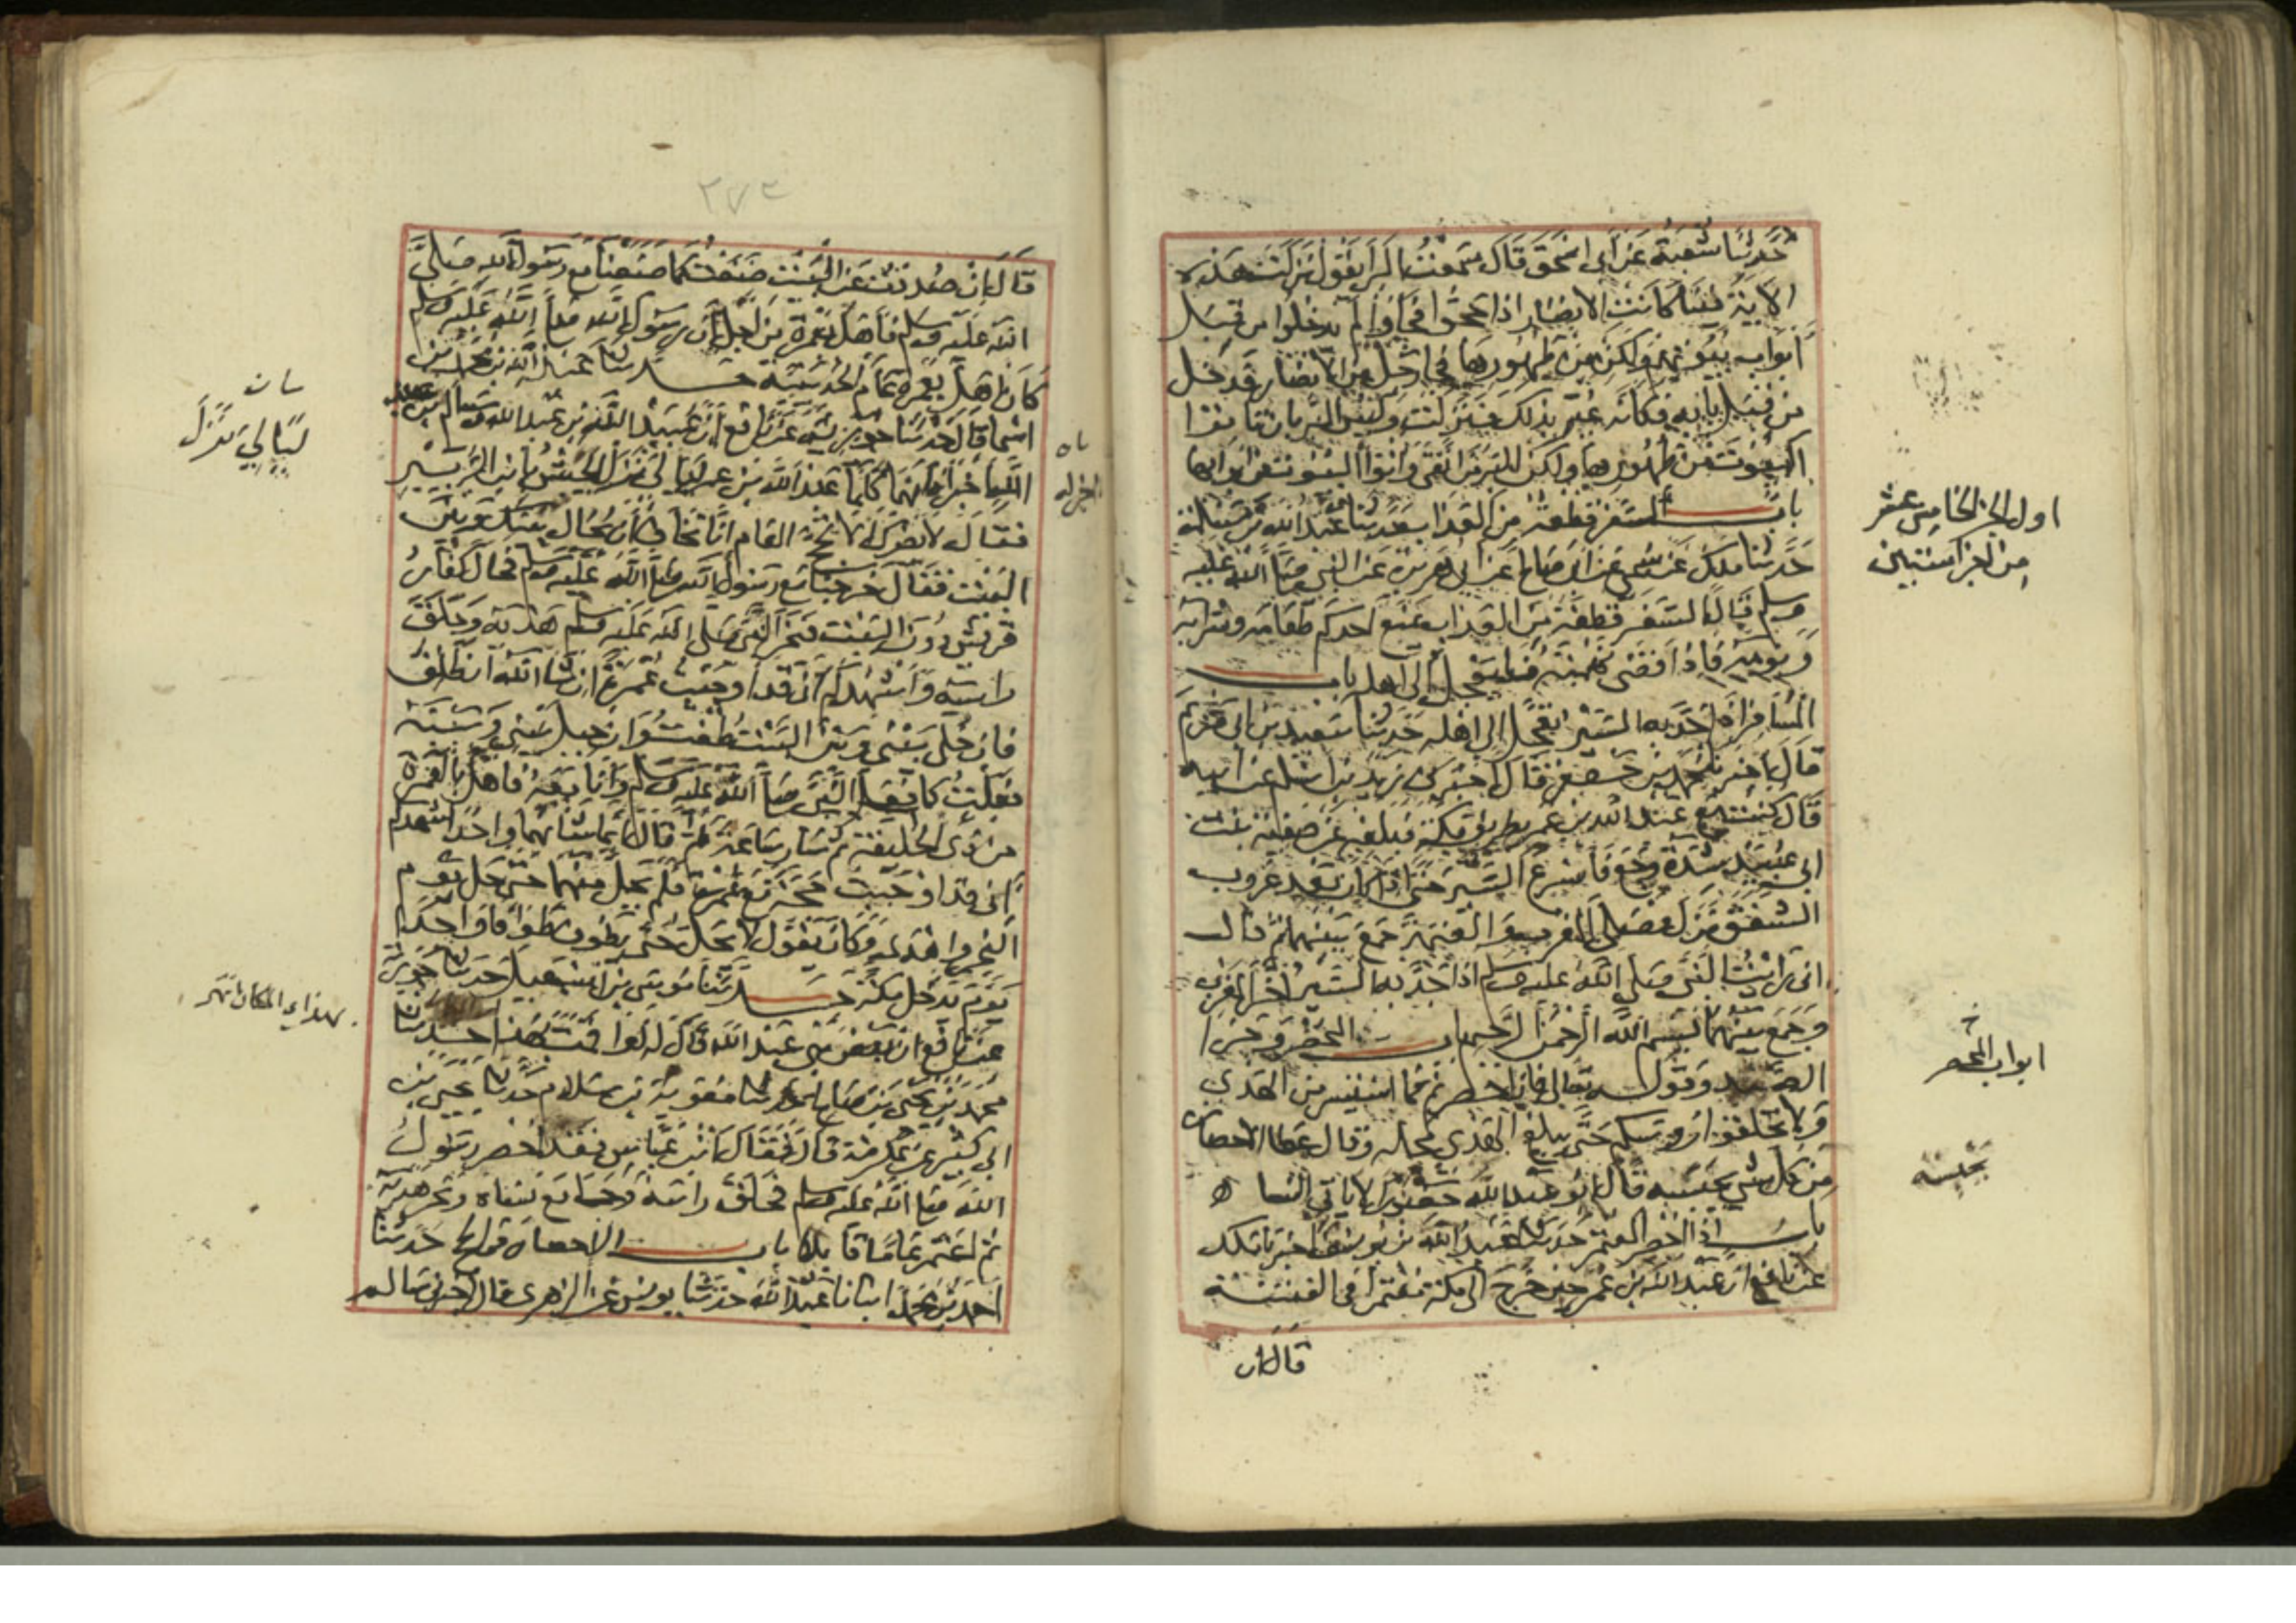 حدثنا شعبة عن ابي اسحق قال سمعت البرا يقول نزلت هذه
الاية فينا كانت الانصار اذا حجوا فجاؤا لم يدخلوا من قبل
ابواب بيوتهم ولكن من ظهورها فجا رجل من الانصار فدخل
من قبل بابه فكانه عير بذلك فنزلت وليس البر بان تاتوا
البيوت من ظهورها ولكن البر من اتقى واتوا البيوت من ابوابها
باب السفر قطعة من العذاب حدثنا عبد الله بن مسلمة
حدثنا ملك عن سمي عن ابي صالح عن ابي هريرة عن النبي صلى الله عليه
وسلم قال السفر قطعة من العذاب يمنع احدكم طعامه وشرابه
ونومه فاذا قضى نهمته فليعجل الى اهله باب
المسافر اذا جد به السير يعجل الى اهله حدثنا سعيد بن ابي مريم
قال اخبرنا محمد بن جعفر قال اخبرني زيد بن اسلم عن ابيه
قال كنت مع عبد الله بن عمر بطريق مكة فبلغه عن صفية بنت
ابي عبيد شدة وجع فاسرع السير حتى اذا كان بعد غروب
الشفق نزل فصلى المغرب والعتمة جمع بينهما ثم قال
اني رايت النبي صلى الله عليه وسلم اذا جد به السير اخر المغرب
وجمع بينهما بسم الله الرحمن الرحيم باب المحصر وجزا
الصيد وقوله تعالى فان احصرتم فما استيسر من الهدي
ولا تحلقوا رؤسكم حتى يبلغ الهدي محله وقال عطا الاحصار
من كل شي يحبسه قال ابو عبد الله حصورا لا ياتي النسا
باب اذا احصر المعتمر حدثنا عبد الله بن يوسف اخبرنا ملك
عن نافع ان عبد الله بن عمر حين خرج الى مكة معتمرا في الفتنة
قال ان
اول الجز الخامس عشر
من اجزا ستين
ابواب المحصر
يحبسه
٢٧٤
قال ان صددت عن البيت صنعت كما صنعنا مع رسول الله صلى
الله عليه وسلم فاهل بعمرة من اجل ان رسول الله صلى الله عليه وسلم
كان اهل بعمرة عام الحديبية حدثنا عبد الله بن محمد بن
اسما قال حدثنا جويرية عن نافع ان عبيد الله بن عبد الله وسالم بن عبد
الله اخبراه انهما كلما عبد الله بن عمر ليالي نزل الجيش بابن الزبير
فقال لا يضرك ان لا تحج العام انا نخاف ان يحال بينك وبين
البيت فقال خرجنا مع رسول الله صلى الله عليه وسلم فحال كفار
قريش دون البيت فنحر النبي صلى الله عليه وسلم هديه وحلق
راسه واشهدكم اني قد اوجبت عمرة ان شا الله انطلق
فان خلي بيني وبين البيت طفت وان حيل بيني وبينه
فعلت كما فعل النبي صلى الله عليه وسلم وانا معه فاهل بالعمرة
من ذي الحليفة ثم سار ساعة ثم قال انما شانهما واحد اشهدكم
اني قد اوجبت حجة مع عمرتي فلم يحل منهما حتى حل يوم
النحر واهدى وكان يقول لا يحل حتى يطوف طوافا واحدا
يوم يدخل مكة حدثنا موسى بن اسمعيل حدثنا جويرية
عن نافع ان بعض بني عبد الله قال له لو اقمت بهذا حدثنا
محمد بن يحيى بن صالح حدثنا معوية بن سلام حدثنا يحيى بن
ابي كثير عن عكرمة قال فقال ابن عباس قد احصر رسول
الله صلى الله عليه وسلم فحلق راسه وجامع نساه ونحر هديه
ثم اعتمر عاما قابلا باب الاحصار في الحج حدثنا
احمد بن محمد انبانا عبد الله حدثنا يونس عن الزهري قال اخبرني سالم
ليالي نزل
بهذا اي المكان